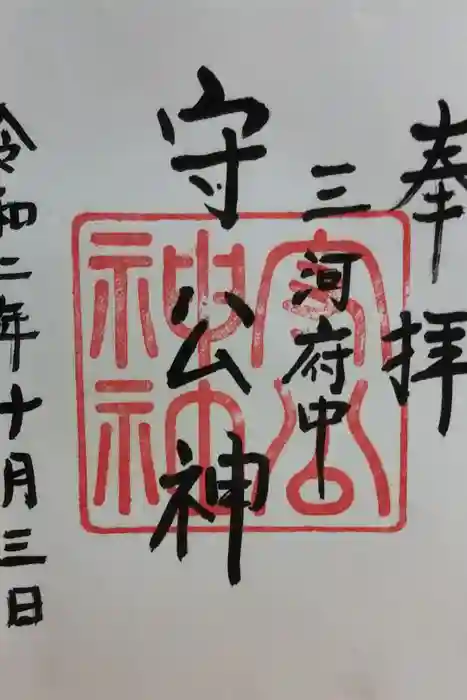 奉拝
三河府中
守公神
令和二年十月三日
守公神社